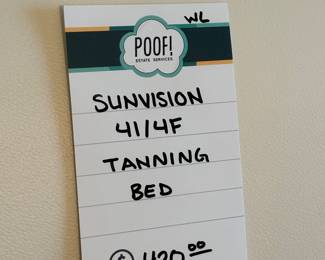 WL
POOF!
ESTATE SERVICES
SUNVISION
41/4F
TANNING
BED
$ 420.00